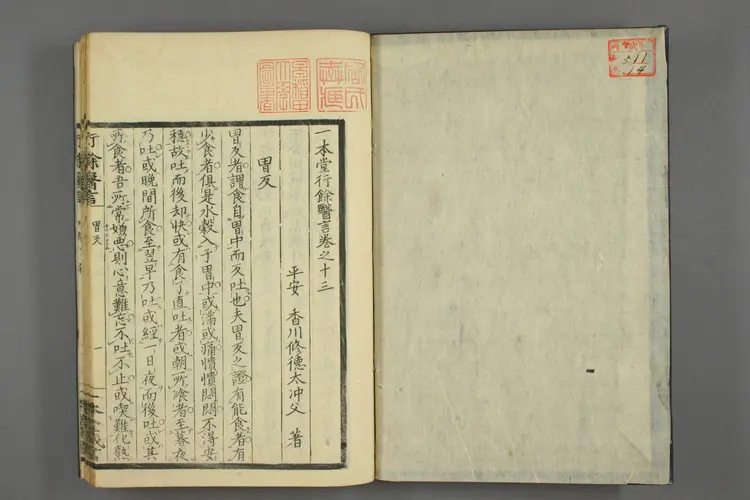 一本堂行餘醫言卷之十三
平安 香川修德太冲父 著
胃反
胃反者謂食自胃中而反吐也夫胃反之證有能食者有
少食者俱是水穀入于胃中或滿或痛憒憒悶悶不得安
穩故吐而後却快或有食了直吐者或朝所飡者至暮夜
乃吐或晚間所食至翌早乃吐或經一日夜而後吐或其
所食者吾所常嫌惡則心意難忘不吐不止或喫難化熟
行餘醫言
胃反
一
511
14